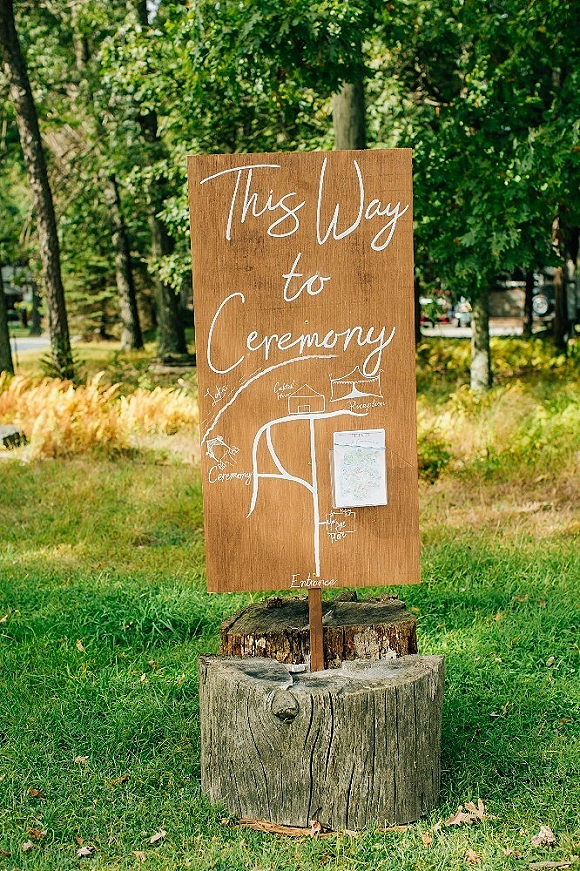 This Way
to
Ceremony
Lake
Reception
Ceremony
Entrance